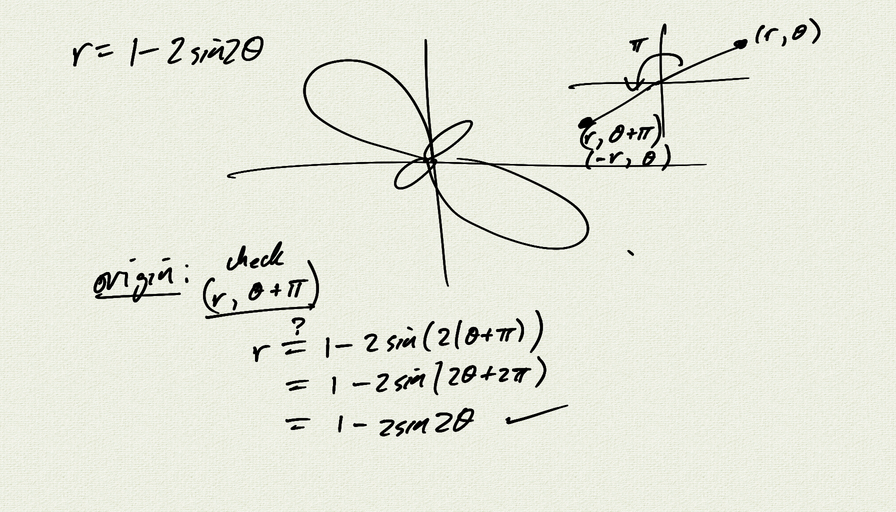 r = 1 - 2 sin2θ
π
(r, θ)
(r, θ+π)
(-r, θ)
origin: check
(r, θ+π)
r ?= 1 - 2 sin(2(θ+π))
= 1 - 2 sin(2θ+2π)
= 1 - 2 sin 2θ ✓